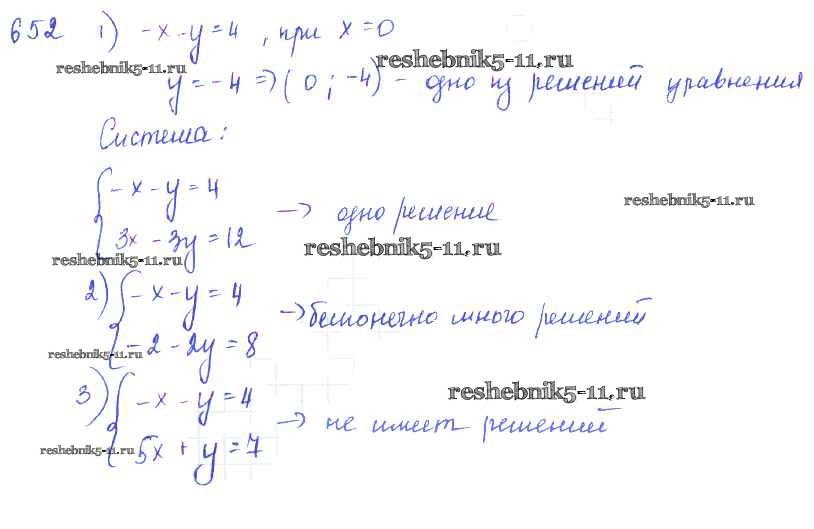 652 1) -x-y=4, при x=0
reshebnik5-11.ru reshebnik5-11.ru
y=-4 => (0; -4) - одно из решений уравнения
Система:
{ -x-y=4
-> одно решение reshebnik5-11.ru
3x-3y=12 reshebnik5-11.ru
reshebnik5-11.ru
2) { -x-y=4
-> бесконечно много решений
-2-2y=8
reshebnik5-11.ru
3) { -x-y=4 reshebnik5-11.ru
-> не имеет решений
5x+y=7
reshebnik5-11.ru